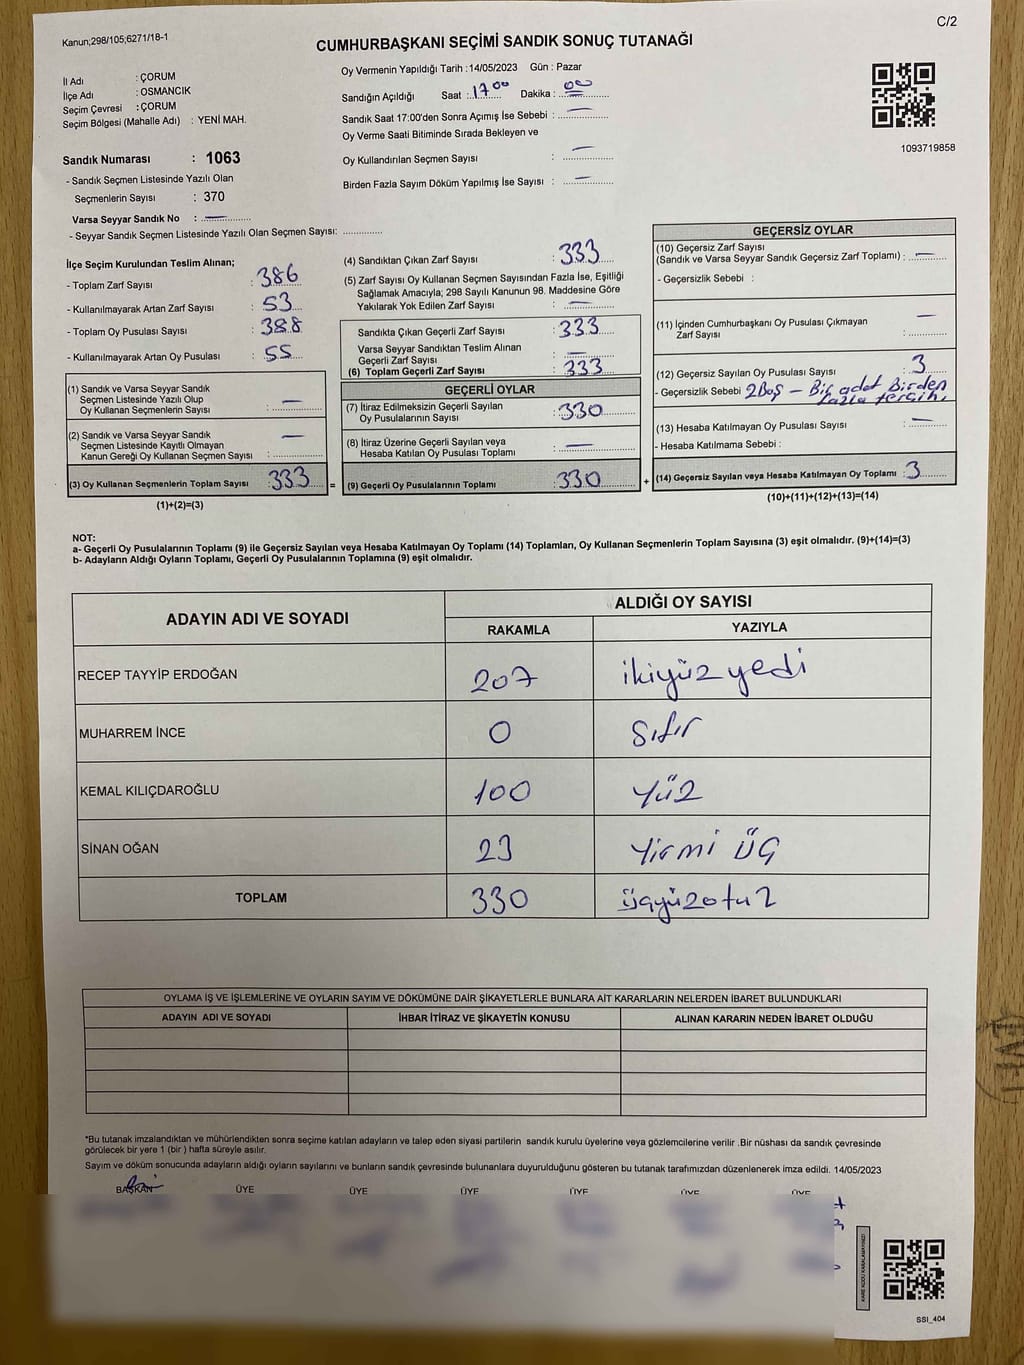 C/2
Kanun;298/105;6271/18-1
CUMHURBAŞKANI SEÇİMİ SANDIK SONUÇ TUTANAĞI
İl Adı : ÇORUM
İlçe Adı : OSMANCIK
Seçim Çevresi : ÇORUM
Seçim Bölgesi (Mahalle Adı) : YENİ MAH.
Oy Vermenin Yapıldığı Tarih :14/05/2023 Gün : Pazar
Sandığın Açıldığı Saat : 17 00 Dakika : 00
Sandık Saat 17:00'den Sonra Açımış İse Sebebi : —
Oy Verme Saati Bitiminde Sırada Bekleyen ve
Oy Kullandırılan Seçmen Sayısı : —
Birden Fazla Sayım Döküm Yapılmış İse Sayısı : —
1093719858
Sandık Numarası : 1063
- Sandık Seçmen Listesinde Yazılı Olan
Seçmenlerin Sayısı : 370
Varsa Seyyar Sandık No : —
- Seyyar Sandık Seçmen Listesinde Yazılı Olan Seçmen Sayısı:
İlçe Seçim Kurulundan Teslim Alınan;
- Toplam Zarf Sayısı : 386
- Kullanılmayarak Artan Zarf Sayısı : 53
- Toplam Oy Pusulası Sayısı : 388
- Kullanılmayarak Artan Oy Pusulası : 55
(1) Sandık ve Varsa Seyyar Sandık
Seçmen Listesinde Yazılı Olup
Oy Kullanan Seçmenlerin Sayısı : —
(2) Sandık ve Varsa Seyyar Sandık
Seçmen Listesinde Kayıtlı Olmayan
Kanun Gereği Oy Kullanan Seçmen Sayısı : —
(3) Oy Kullanan Seçmenlerin Toplam Sayısı : 333 =
(1)+(2)=(3)
(4) Sandıktan Çıkan Zarf Sayısı : 333
(5) Zarf Sayısı Oy Kullanan Seçmen Sayısından Fazla İse, Eşitliği
Sağlamak Amacıyla; 298 Sayılı Kanunun 98. Maddesine Göre
Yakılarak Yok Edilen Zarf Sayısı : —
Sandıkta Çıkan Geçerli Zarf Sayısı : 333
Varsa Seyyar Sandıktan Teslim Alınan
Geçerli Zarf Sayısı : —
(6) Toplam Geçerli Zarf Sayısı : 333
GEÇERLİ OYLAR
(7) İtiraz Edilmeksizin Geçerli Sayılan
Oy Pusulasının Sayısı : 330
(8) İtiraz Üzerine Geçerli Sayılan veya
Hesaba Katılan Oy Pusulası Toplamı : —
(9) Geçerli Oy Pusulalarının Toplamı : 330 +
GEÇERSİZ OYLAR
(10) Geçersiz Zarf Sayısı
(Sandık ve Varsa Seyyar Sandık Geçersiz Zarf Toplamı) : —
- Geçersizlik Sebebi :
(11) İçinden Cumhurbaşkanı Oy Pusulası Çıkmayan
Zarf Sayısı : —
(12) Geçersiz Sayılan Oy Pusulası Sayısı : 3
- Geçersizlik Sebebi 2 Boş — Bir adet Birden
fazla tercih.
(13) Hesaba Katılmayan Oy Pusulası Sayısı : —
- Hesaba Katılmama Sebebi :
(14) Geçersiz Sayılan veya Hesaba Katılmayan Oy Toplamı : 3
(10)+(11)+(12)+(13)=(14)
NOT:
a- Geçerli Oy Pusulalarının Toplamı (9) ile Geçersiz Sayılan veya Hesaba Katılmayan Oy Toplamı (14) Toplamları, Oy Kullanan Seçmenlerin Toplam Sayısına (3) eşit olmalıdır. (9)+(14)=(3)
b- Adayların Aldığı Oyların Toplamı, Geçerli Oy Pusulalarının Toplamına (9) eşit olmalıdır.
ADAYIN ADI VE SOYADI ALDIĞI OY SAYISI
RAKAMLA YAZIYLA
RECEP TAYYİP ERDOĞAN 207 ikiyüz yedi
MUHARREM İNCE 0 Sıfır
KEMAL KILIÇDAROĞLU 100 Yüz
SİNAN OĞAN 23 Yirmi Üç
TOPLAM 330 üçyüzotuz
OYLAMA İŞ VE İŞLEMLERİNE VE OYLARIN SAYIM VE DÖKÜMÜNE DAİR ŞİKAYETLERLE BUNLARA AİT KARARLARIN NELERDEN İBARET BULUNDUKLARI
ADAYIN ADI VE SOYADI İHBAR İTİRAZ VE ŞİKAYETİN KONUSU ALINAN KARARIN NEDEN İBARET OLDUĞU
*Bu tutanak imzalandıktan ve mühürlendikten sonra seçime katılan adayların ve talep eden siyasi partilerin sandık kurulu üyelerine veya gözlemcilerine verilir .Bir nüshası da sandık çevresinde
görülecek bir yere 1 (bir ) hafta süreyle asılır.
Sayım ve döküm sonucunda adayların aldığı oyların sayılarını ve bunların sandık çevresinde bulunanlara duyurulduğunu gösteren bu tutanak tarafımızdan düzenlenerek imza edildi. 14/05/2023
BAŞKAN ÜYE ÜYE ÜYE ÜYE ÜYE ÜYE
KARE KODU KARALAMAYINIZ!
SSI_404